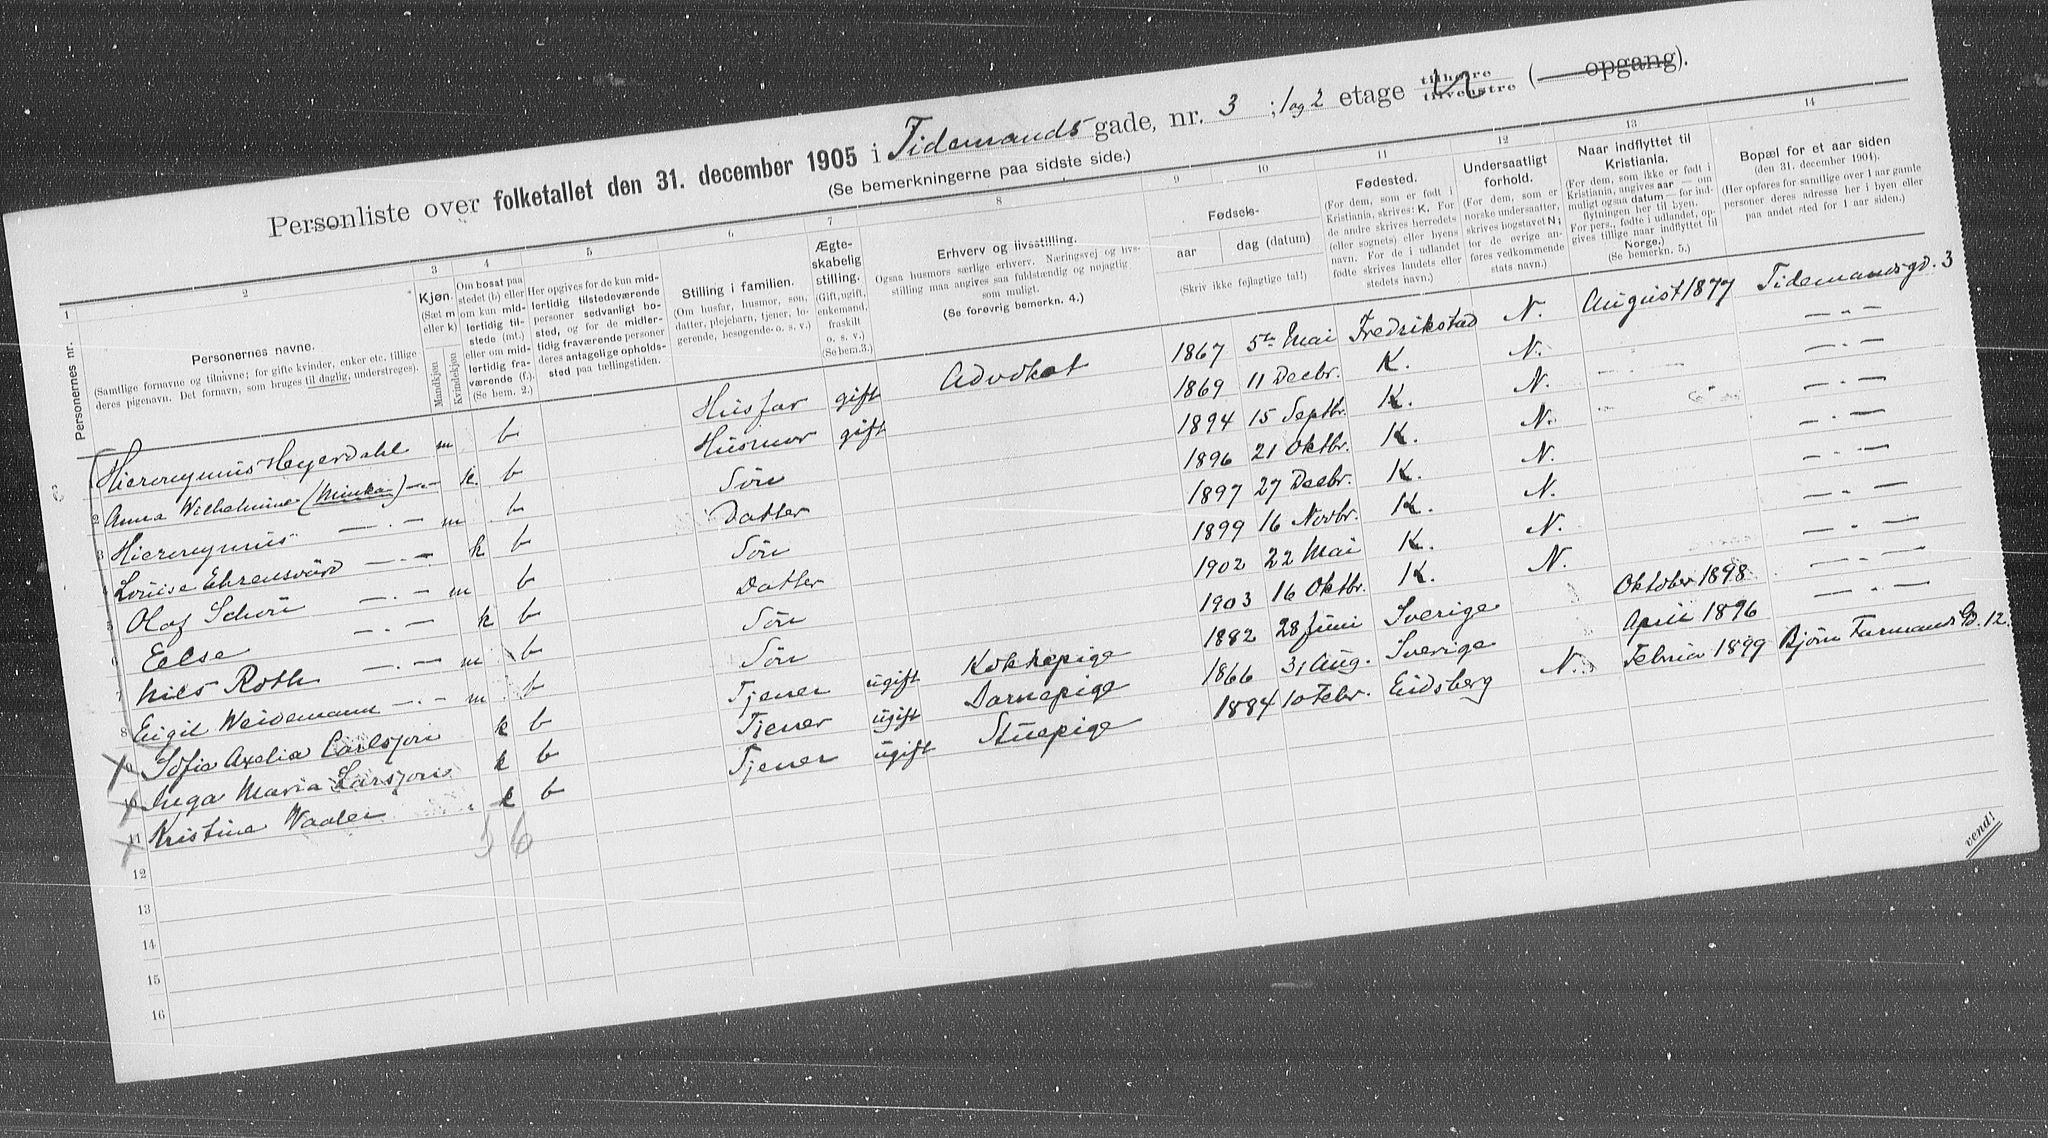 Personliste over folketallet den 31. december 1905 i Tidemands gade, nr. 3 ; 1 og 2 etage tilhøire tilvenstre ( opgang).
(Se bemerkningerne paa sidste side.)
1 2 3 4 5 6 7 8 9 10 11 12 13 14
Personernes nr.
Personernes navne.
(Samtlige fornavne og tilnavne; for gifte kvinder, enker etc. tillige deres pigenavn. Det fornavn, som bruges til daglig, understreges).
Kjøn.
(Sæt m eller k)
Mandkjøn
Kvindekjøn
Om bosat paa stedet (b) eller om kun midlertidig tilstede (mt.) eller om midlertidig fraværende (f.).
(Se bem. 2.)
Her opgives for de kun midlertidig tilstedeværende personer sedvanligt bosted, og for de midlertidig fraværende personer deres antagelige opholdssted paa tællingstiden.
Stilling i familien.
(Om husfar, husmor, søn, datter, plejebarn, tjener, logerende, besøgende o. s. v.)
Ægteskabelig stilling.
(Gift, ugift, enkemand, fraskilt o. s. v.)
(Se bem. 3.)
Erhverv og livsstilling.
Ogsaa husmors særlige erhverv. Næringsvej og livsstilling maa angives saa fuldstændig og nøjagtig som muligt.
(Se forøvrig bemerkn. 4.)
Fødsels-
aar
dag (datum)
(Skriv ikke fejlagtige tal!)
Fødested.
(For dem, som er født i Kristiania, skrives: K. For de andre skrives herredets (eller sognets) eller byens navn. For de i udlandet fødte skrives landets eller stedets navn.)
Undersaatligt forhold.
(For dem, som er norske undersaatter, skrives bogstavet N; for de øvrige anføres vedkommende stats navn.)
Naar indflyttet til Kristiania.
(For dem, som ikke er født i Kristiania, angives aar — om muligt ogsaa datum — for indflytningen her til byen. For pers., fødte i udlandet, opgives tillige naar indflyttet til Norge.)
(Se bemerkn. 5.)
Bopæl for et aar siden
(den 31. december 1904).
(Her opføres for samtlige over 1 aar gamle personer deres adresse her i byen eller paa andet sted for 1 aar siden.)
Hieronymus Heyerdahl m b Husfar gift Advokat 1867 5te Mai Fredrikstad N. August 1877 Tidemandsgd. 3
2 Anna Wilhelmine (Minka) —"— k. b Husmor gift 1869 11 Decbr. K. N. —"—
3 Hieronymus —"— m b Søn 1894 15 Septbr. K. N. —"—
4 Louise Ehrensvärd —"— k b Datter 1896 21 Oktbr. K. N. —"—
5 Olaf Schou —"— m b Søn 1897 27 Decbr. K. N. —"—
6 Else —"— k b Datter 1899 16 Novbr. K. N. —"—
7 Nils Roth —"— m b Søn 1902 22 Mai K. N. —"—
8 Eigil Weidemann —"— m b Søn 1903 16 Oktbr. K. N. —"—
Sofia Axelia Carlsson k b Tjener ugift Kokkepige 1882 28 Juni Sverige Oktober 1898 —"—
Inga Maria Larsson k b Tjener ugift Barnepige 1866 31 Aug. Sverige April 1896 —"—
11 Kristine Waaler k b Tjener ugift Stuepige 1884 10 Febr. Eidsberg N. Februar 1899 Bjørn Farmans Gd. 12.
5 6
12
13
14
15
16
vend!